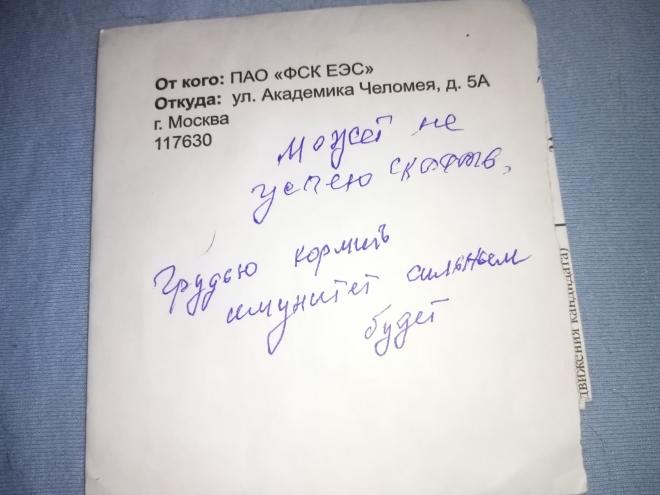 От кого: ПАО «ФСК ЕЭС»
Откуда: ул. Академика Челомея, д. 5А
г. Москва
117630
Может не
успею сказать,
Грудью кормить
имунитет сильным
будет
движения кандидата)